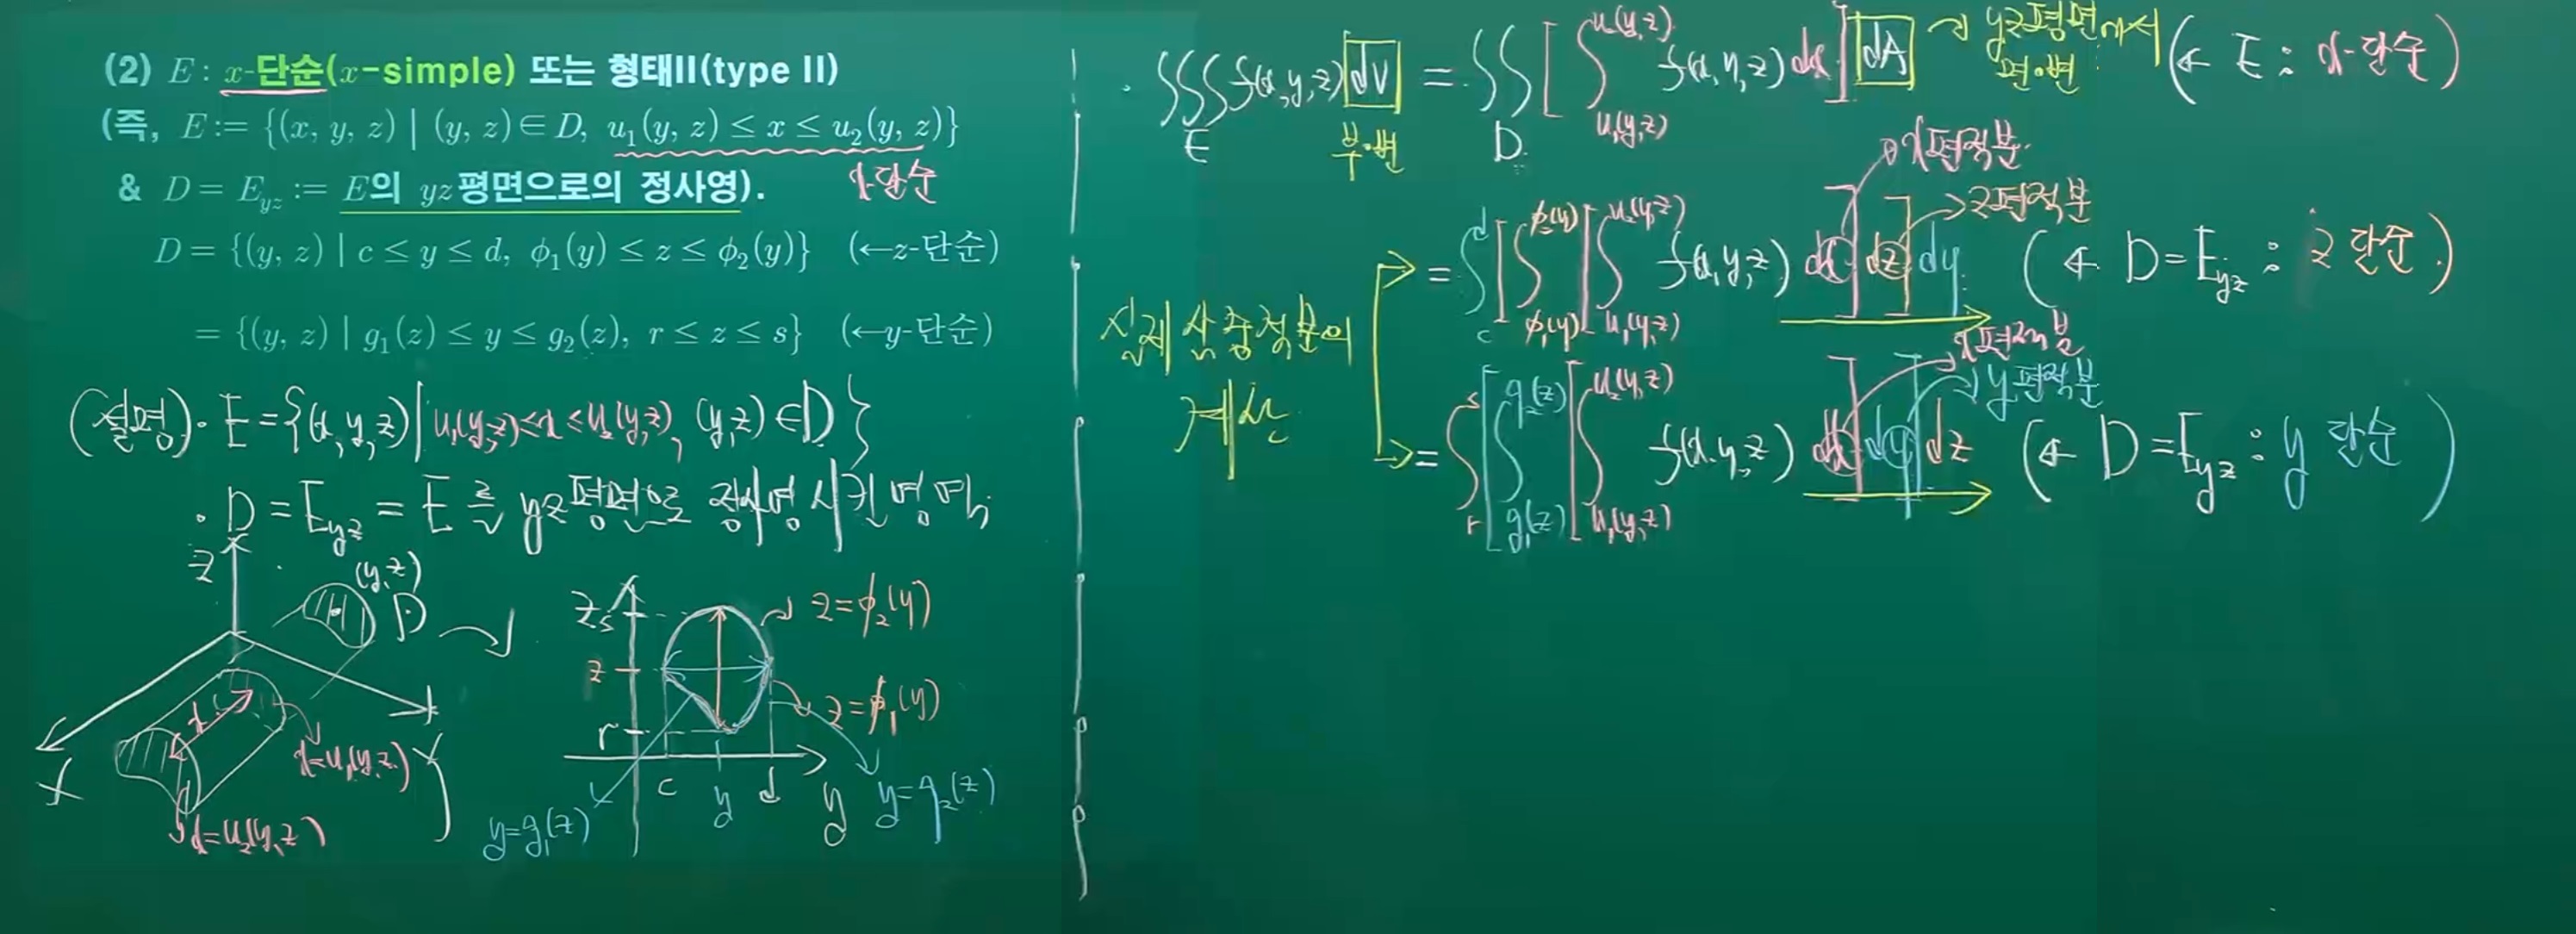 (2) E : x-단순(x-simple) 또는 형태II(type II)
(즉, E := {(x, y, z) | (y, z) ∈ D, u₁(y, z) ≤ x ≤ u₂(y, z)}
x-단순
& D = E_yz := E의 yz평면으로의 정사영).
D = {(y, z) | c ≤ y ≤ d, φ₁(y) ≤ z ≤ φ₂(y)} (←z-단순)
= {(y, z) | g₁(z) ≤ y ≤ g₂(z), r ≤ z ≤ s} (←y-단순)
(설명)· E = {(x, y, z) | u₁(y,z) ≤ x ≤ u₂(y,z), (y,z) ∈ D}
· D = E_yz = E를 yz평면으로 정사영시킨 영역;
z
(y,z)
D
x
x=u₁(y,z)
x=u₂(y,z)
y
z
s
z
r
c
y
d
y
z=φ₂(y)
z=φ₁(y)
y=g₁(z)
y=g₂(z)
· ∭_E f(x,y,z) dV = ∬_D [∫_{u₁(y,z)}^{u₂(y,z)} f(x,y,z) dx] dA (← E : x-단순)
부·변
yz평면에서
면·변
실제 삼중적분의
계산
= ∫_c^d [∫_{φ₁(y)}^{φ₂(y)} [∫_{u₁(y,z)}^{u₂(y,z)} f(x,y,z) dx] dz] dy (← D=E_yz : z 단순)
x편적분
z편적분
= ∫_r^s [∫_{g₁(z)}^{g₂(z)} [∫_{u₁(y,z)}^{u₂(y,z)} f(x,y,z) dx] dy] dz (← D=E_yz : y 단순)
x편적분
y편적분